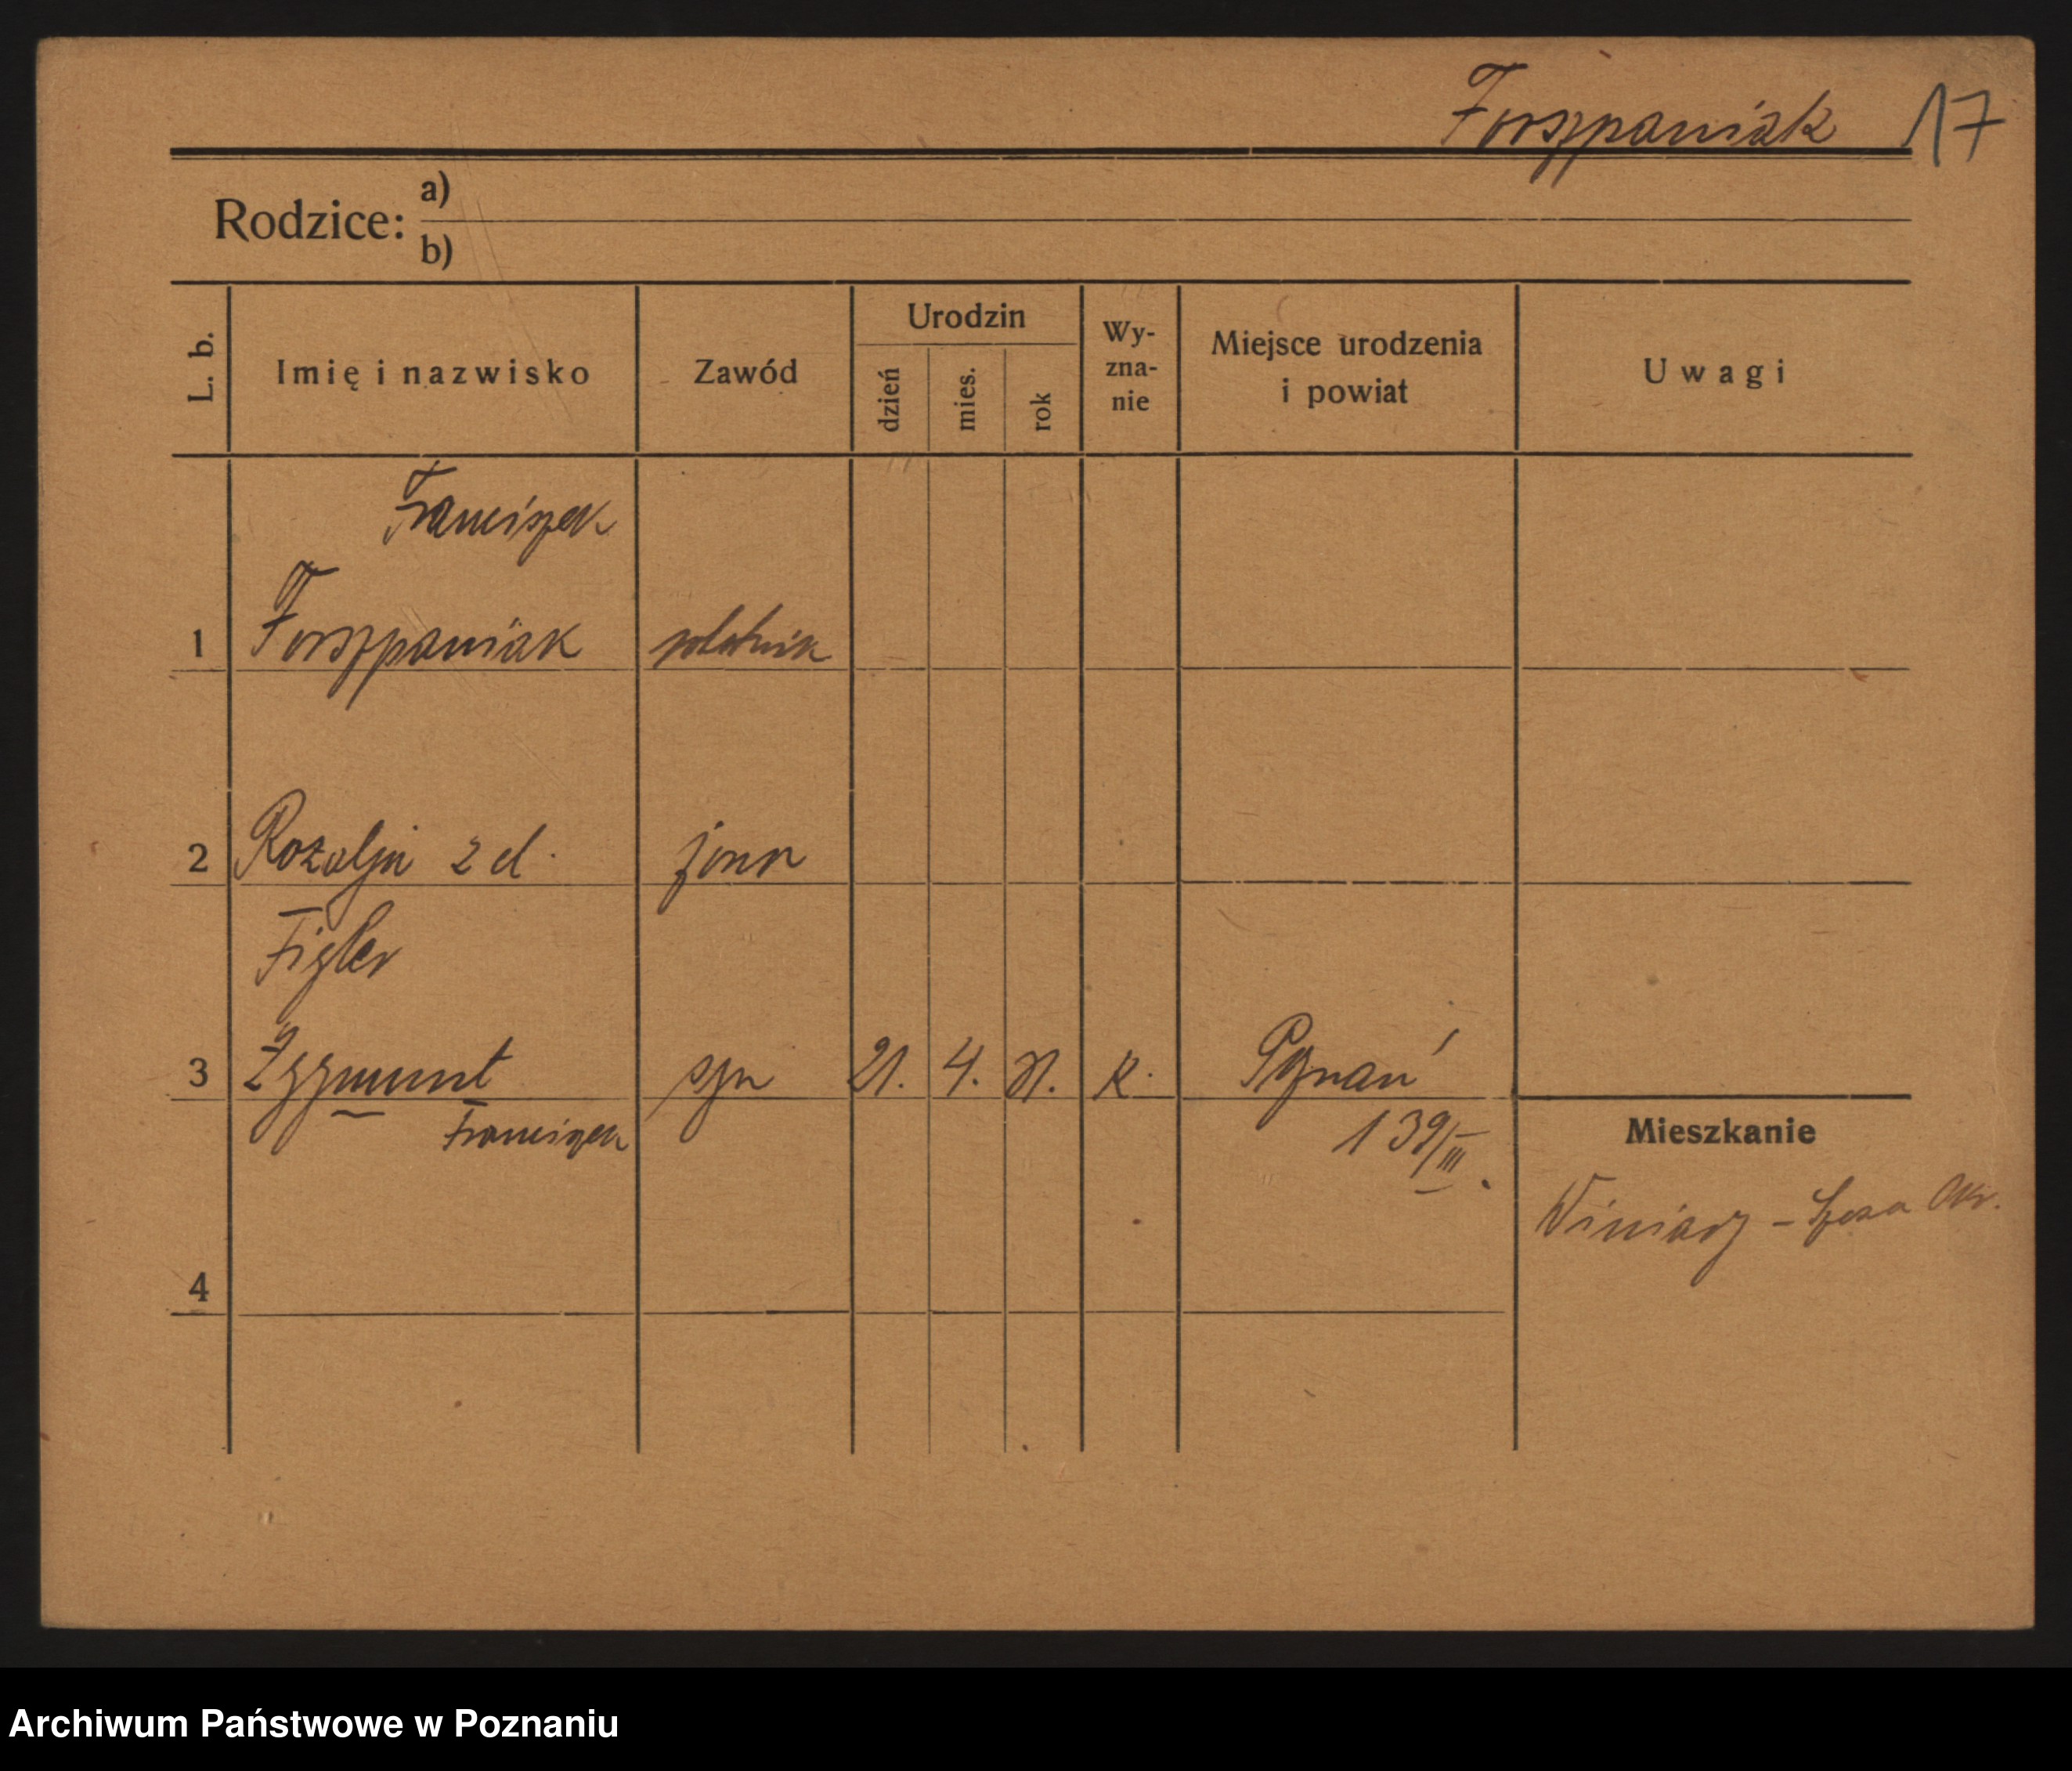 Forszpaniak 17
Rodzice: a)
b)
L. b.
Imię i nazwisko
Zawód
Urodzin
dzień
mies.
rok
Wy-
zna-
nie
Miejsce urodzenia
i powiat
Uwagi
Franciszek
1 Forszpaniak robotnik
2 Rozalja z d. żona
Figler
3 Zygmunt syn 21. 4. 21. k. Poznań
Franciszek 139/III.
Mieszkanie
Winiary -
4
Archiwum Państwowe w Poznaniu